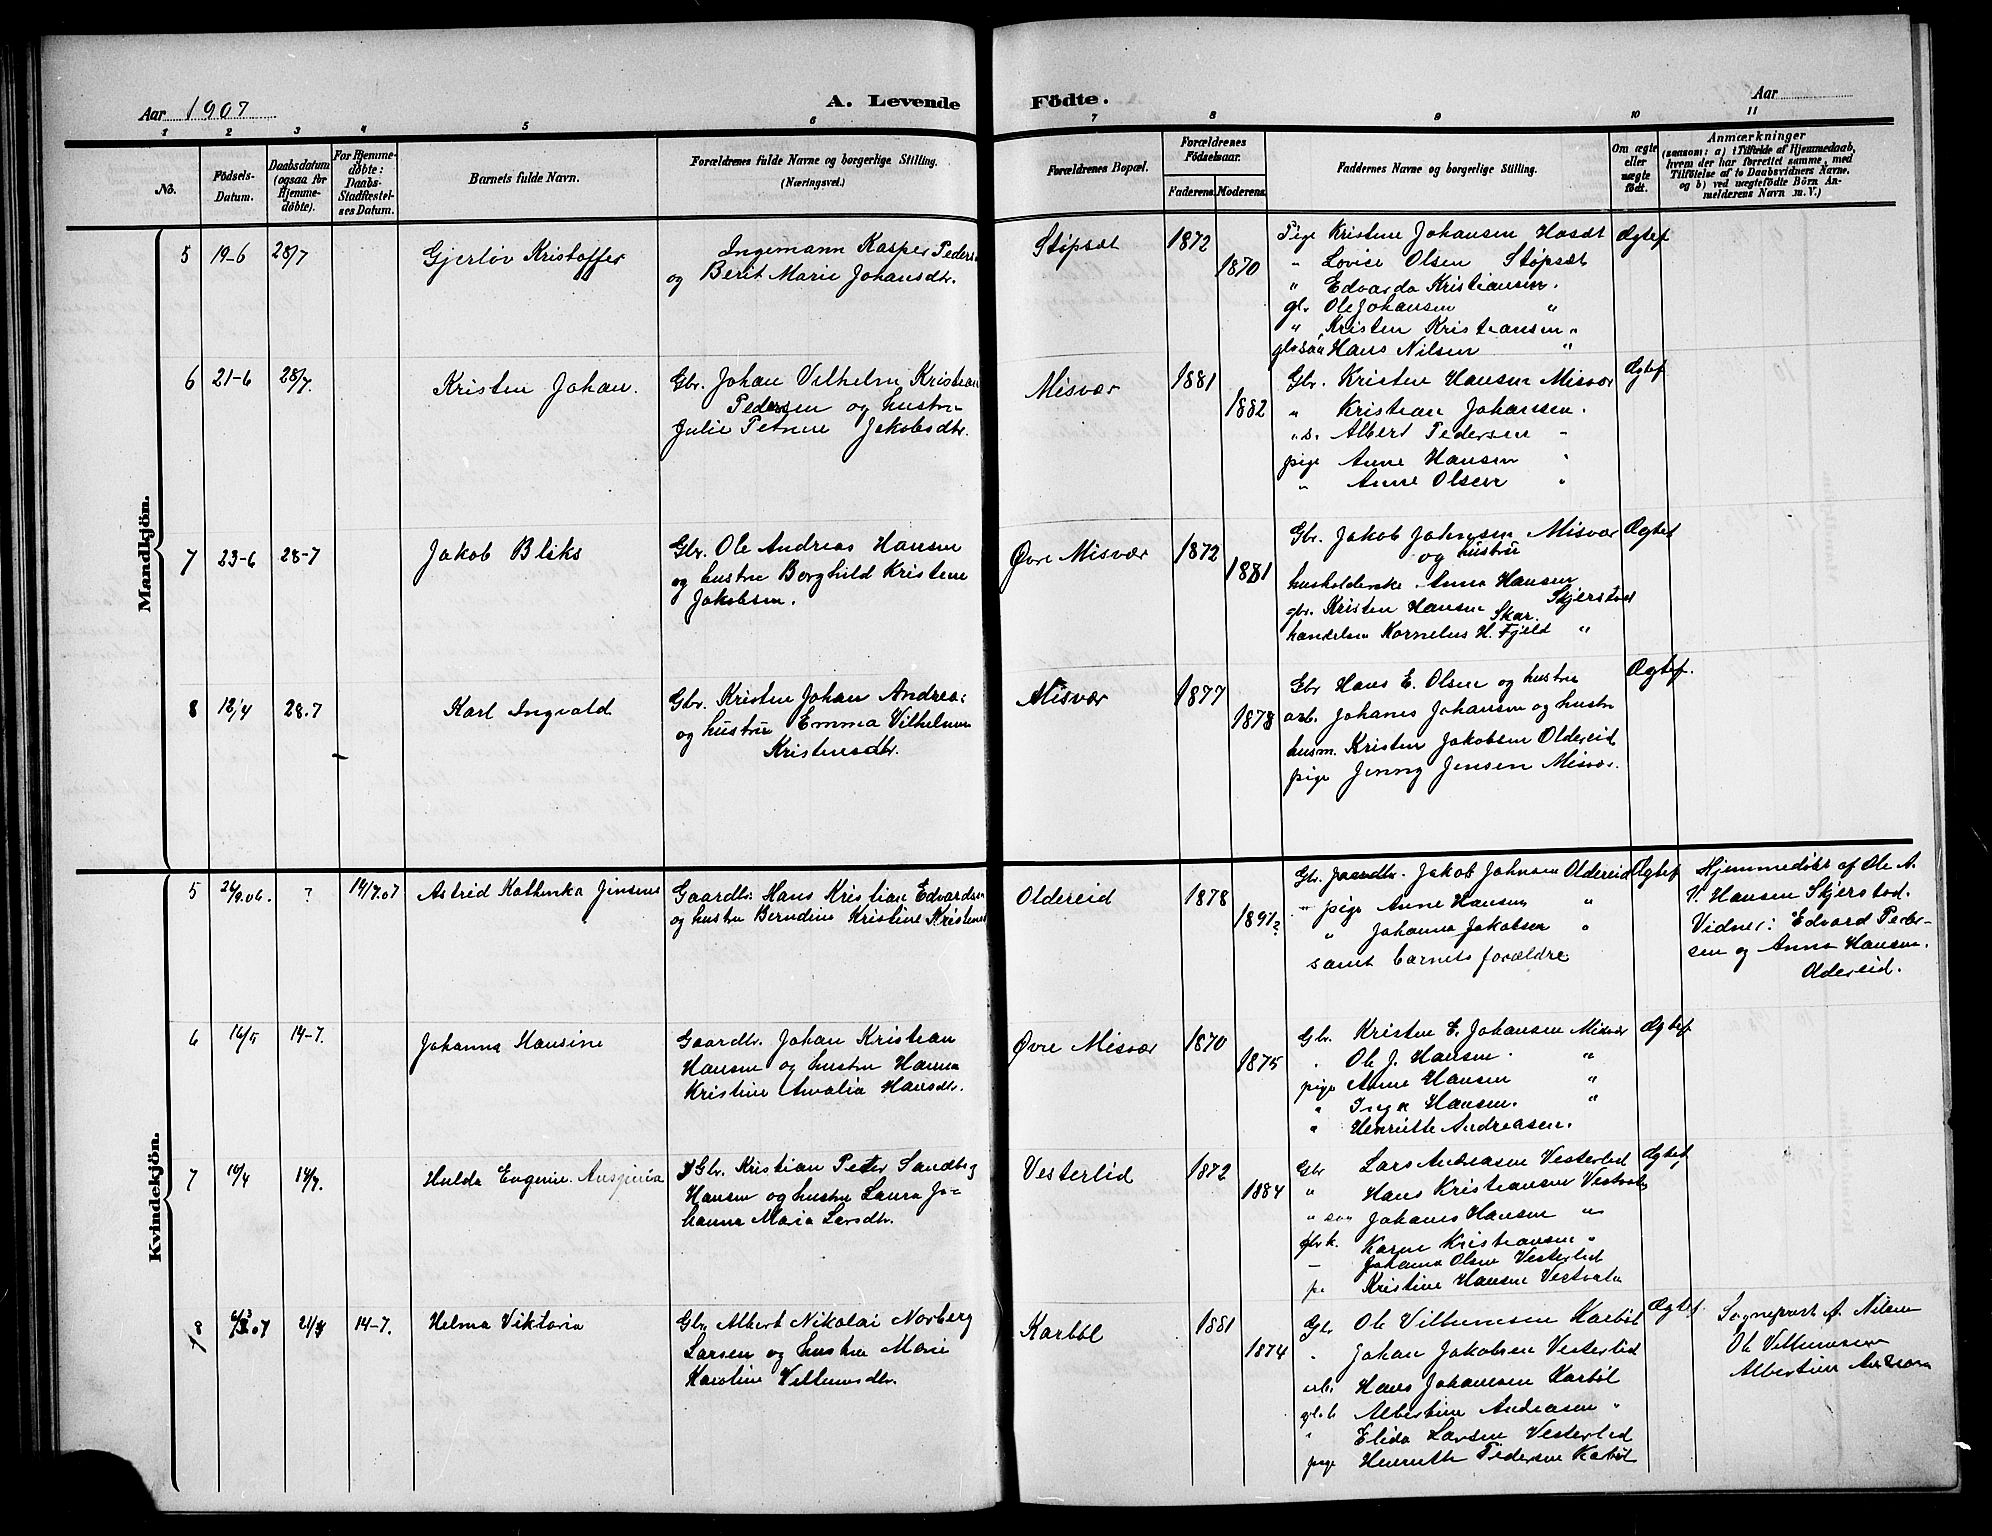 Aar 1907
A. Levende Födte.
Aar
1 2 3 4 5 6 7 8 9 10 11
No.
Födsels-Datum.
Daabsdatum (ogsaa for Hjemme-döbte).
For Hjemme-döbte: Daabs-Stadfæstel-ses Datum.
Barnets fulde Navn.
Forældrenes fulde Navne og borgerlige Stilling.
(Næringsvei.)
Forældrenes Bopæl.
Forældrenes Födselsaar.
Faderens. Moderens.
Faddernes Navne og borgerlige Stilling.
Om ægte eller uægte födt.
Anmærkninger
(saasom: a) i Tilfælde af Hjemmedaab,
hvem der har forrettet samme, med
Tilföielse af to Daabsvidners Navne.
og b) ved uægtefödte Börn An-
melderens Navn m. V.)
Mandkjön.
5 19-6 28/7 Gjerløv Kristoffer
Ingemann Kasper Peders
og Berit Marie Johansdtr.
Støpsæt 1872 1870
Pige Kristine Johansen Hosæt
" Lovise Olsen Støpsæt
" Edvarda Kristiansen.
gbr. Ole Johansen "
" Kristen Kristiansen "
gbrsøn Hans Nilsen "
Ægtef
6 21-6 28/7. Kristen Johan.
Gbr. Johan Vilhelm Kristian
Pedersen og hustru
Julie Petrine Jakobsdtr.
Misvær 1881 1882
Gbr. Kristen Hansen Misvær
" Kristian Johansen.
" s. Albert Pedersen -
pige Anne Hansen "
" Anne Olsen "
Ægtef
7 23-6 28-7 Jakob Bliks
Gbr. Ole Andreas Hansen
og hustru Borghild Kristine
Jakobsen.
Øvre Misvær 1872 1881
Gbr. Jakob Johnsen Misvær
og hustru
husholderske Anna Hansen
gbr. Kristen Hansen Skjerstad
Skar.
handelsm Kornelius H. Fjeld "
Ægtef
8 18/4 28.7 Karl Ingvald
Gbr. Kristen Johan Andreas
og hustru Emma Vilhelmine
Kristensdtr.
Misvær 1877 1878
Gbr Hans E. Olsen og hustru
arb. Johanes Johansen og hustru
husm. Kristen Jakobsen Oldereid
pige Jenny Jensen Misvær.
Ægtef.
Kvindekjön.
5 26/9.06. ? 14/7.07 Astrid Kathinka Jensine
Gaardbr. Hans Kristian Edvardsen
og hustru Berndine Kristine Kristens
Oldereid 1878 1891?
Gbr. gaardbr. Jakob Johnsen Oldereid
" pige Anne Hansen "
" Johanna Jakobsen "
samt barnets forældre
Ægtef
Hjemmedøbt af Ole A.
V. Hansen Skjerstad.
Vidner: Edvard Peder-
sen og Anna Hansen.
Oldereid.
6 16/5 14-7. Johanna Hansine
Gaardbr. Johan Kristian
Hansen og hustru Hanna
Kristine Amalia Hansdtr.
Øvre Misvær 1870 1875
Gbr. Kristen E. Johansen Misvær
" Ole J. Hansen "
pige Anne Hansen "
" Inga Hansen. "
" Henriette Andreasen.
Ægtef
7 14/4 14/7. Hulda Eugenie
Gbr. Kristian Peter Sandberg
Hansen og hustru Laura Jo-
hanna Maria Larsdtr.
Vesterlid 1872 1884
Gbr Lars Andreasen Vesterlid
" Hans Kristiansen Vestvatn
" søn Johanes Hansen "
gbr k. Karne Kristiansen "
- Johanna Olsen Vesterlid
p. Kristine Hansen Vestvatn
Ægtef
8 6/3.07 14-7. Helma Viktoria
Gbr Albert Nikolai Norberg
Larsen og hustru Marie
Karoline Villumsdtr.
Karbøl 1881 1874
Gbr Ole Villumsen Karbøl
" Johan Jakobsen Vesterlid
arb. Hans Johansen Karbøl
gbr k Albertine Andreasen "
" Elida Larsen Vesterlid
pige Henriette Pedersen Karbøl
Ægtef.
Sognepræst A. Nilsen
Ole Villumsen
Albertine